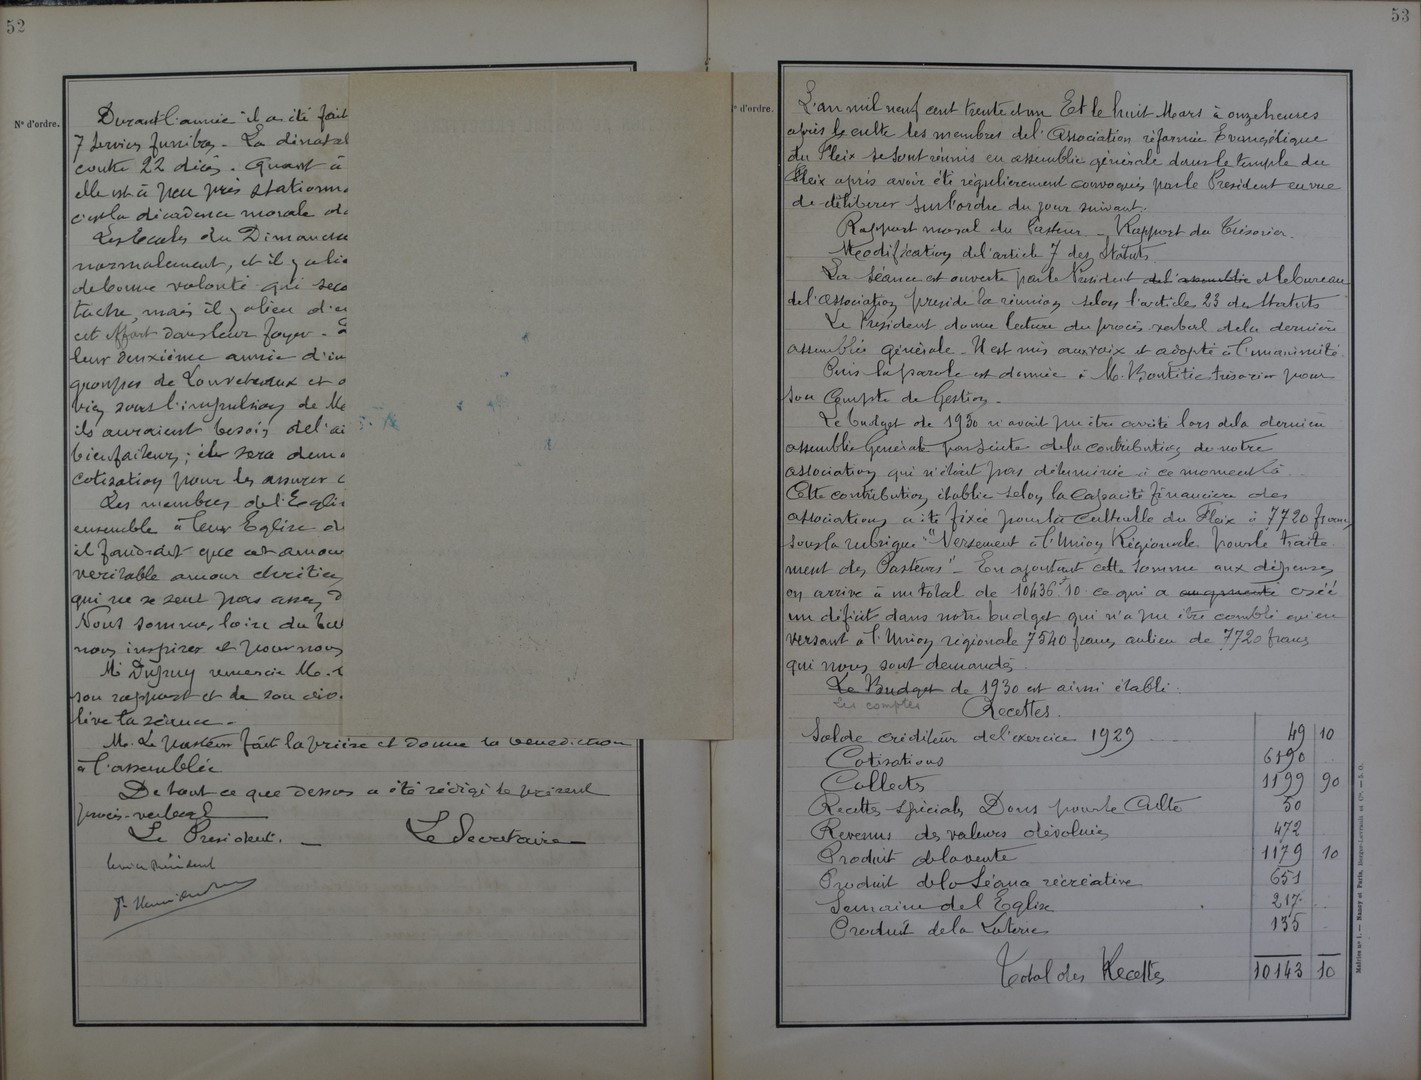 52
N° d'ordre.
Durant l'année il a été fait
7 Services funèbres. La dénatal
contre 22 décès. Quant à
elle est à peu près stationn
c'est la décadence morale de
Les Ecoles du Dimanche
normalement, et il y a lie
de bonne volonté qui seco
tache, mais il y a lieu d'en
cet effort dans leur foyer.
leur deuxième année d'in
groupes de et
vien sous l'impulsion de Me
ils auraient besoin de l'ai
bienfaiteurs; il sera dem
cotisation pour les assurer
Les membres de l'Eglis
ensemble à leur Eglise
il faudrait que cet amou
veritable amour chrétien
qui ne se sent pas assez
Nous sommes loin du but
nous inspirer et pour nous
M. Dupuy remercie M.
son rapport et de son
lève la séance.
M. Le pasteur fait la prière et donne la bénédiction
à l'assemblée
De tout ce que dessus a été rédigé le présent
procès-verbal
Le President. Le Secrétaire
53
N° d'ordre.
L'an mil neuf cent trente et un Et le huit Mars à onze heures
après le culte les membres de l'Association réformée Evangélique
du Fleix se sont réunis en assemblée générale dans le temple du
Fleix après avoir été régulièrement convoqués par le President en vue
de délibérer sur l'ordre du jour suivant:
Rapport moral du Pasteur - Rapport du Trésorier.
Modification de l'article 7 des Statuts
La séance est ouverte par le President de l'assemblée et le bureau
de l'association preside la réunion selon l'article 23 des Statuts
Le President donne lecture du procès verbal de la dernière
assemblée générale. Il est mis aux voix et adopté à l'unanimité.
Puis la parole est donnée à M. trésorier pour
son Compte de Gestion.
Le budget de 1930 n'avait pu être arrêté lors de la dernière
assemblée Générale par suite de la contribution de notre
association qui n'était pas déterminée à ce moment là
Cette contribution établie selon la capacité financière des
associations a été fixée pour la cultuelle du Fleix à 7720 francs
sous la rubrique "Versement à l'Union Régionale pour le traite-
ment des Pasteurs" - En ajoutant cette somme aux dépenses
on arrive à un total de 10436f 10 ce qui a augmenté créé
un déficit dans notre budget qui n'a pu être comblé qu'en
versant à l'Union régionale 7540 francs au lieu de 7720 francs
qui nous sont demandés
Le Budget de 1930 est ainsi établi:
Les comptes
Recettes.
Solde créditeur de l'exercice 1929 49 10
Cotisations 6190
Collectes 1199 90
Recettes spéciales Dons pour le Culte 50
Revenus des valeurs dévolues 472
Produit de la vente 1179 10
Produit de la Séance récréative 651
Semaine de l'Eglise 217
Produit de la Loterie 135
Total des Recettes 10143 10